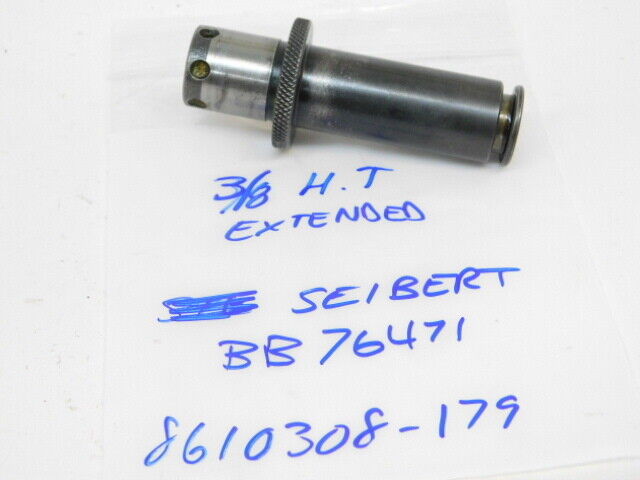 3/8 H.T
EXTENDED
SEIBERT
BB 76471
8610308-179